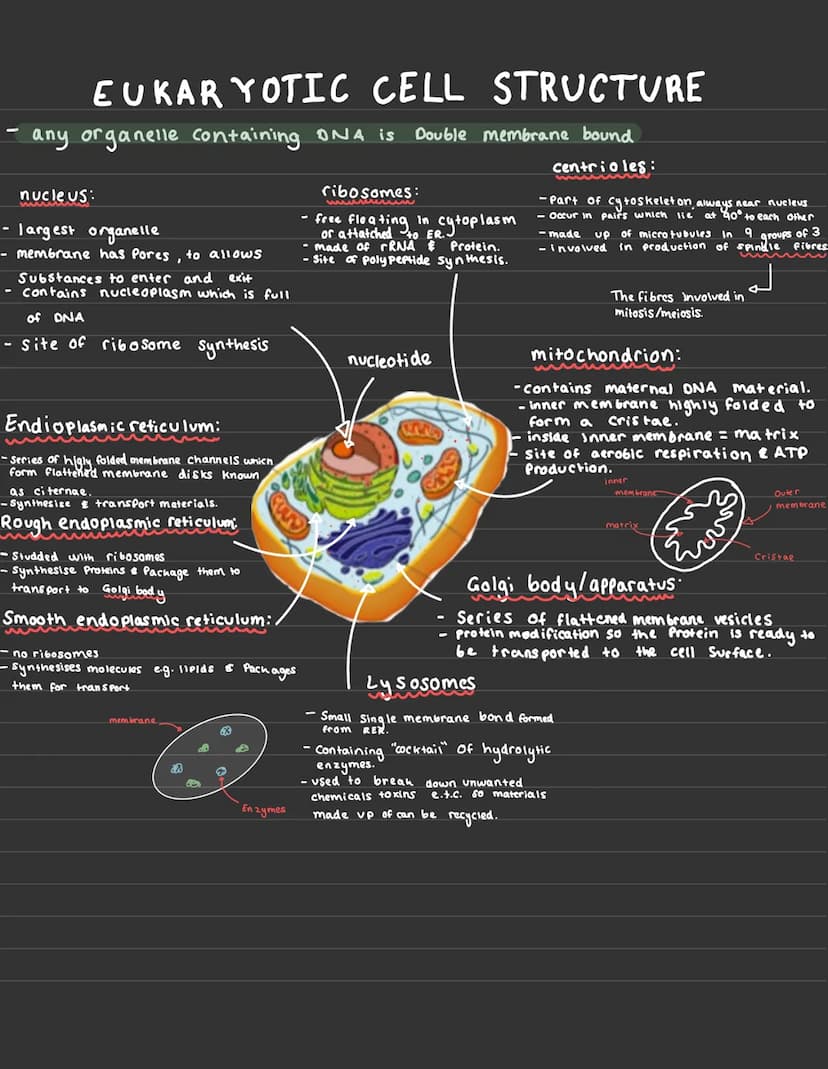 EUKARYOTIC CELL STRUCTURE
- any organelle containing DNA is Double membrane bound
nucleus:
- largest organelle
- membrane has pores, to allows
substances to enter and exit
- contains nucleoplasm which is full
of DNA
- site of ribosome synthesis
ribosomes:
- free floating in cytoplasm
or attatched to ER.
- made of rRNA & Protein.
- site of polypeptide synthesis.
centrioles:
- Part of cytoskeleton, always near nucleus
- occur in pairs which lie at 90° to each other
- made up of microtubules in 9 groups of 3
- involved in production of spindle fibres
The fibres involved in
mitosis/meiosis.
nucleotide
mitochondrion:
- contains maternal DNA material.
- inner membrane highly folded to
form a cristae.
- inside inner membrane = matrix
- site of aerobic respiration & ATP
Production.
inner
membrane
outer
membrane
matrix
Cristae
Endioplasmic reticulum:
- Series of higly folded membrane channels which
form flattened membrane disks known
as citernae.
- Synthesize & transport materials.
Rough endoplasmic reticulum:
- Studded with ribosomes
- Synthesise Proteins & Package them to
transport to Golgi body
Smooth endoplasmic reticulum:
- no ribosomes
- Synthesises molecules e.g. lipids & Packages
them for transport
Golgi body/apparatus:
- Series of flattened membrane vesicles
- protein modification so the Protein is ready to
be transported to the cell surface.
Lysosomes
- Small single membrane bond formed
from RER.
- Containing "cocktail" of hydrolytic
enzymes.
- used to break down unwanted
chemicals toxins e.t.c. so materials
made up of can be recycled.
membrane
Enzymes